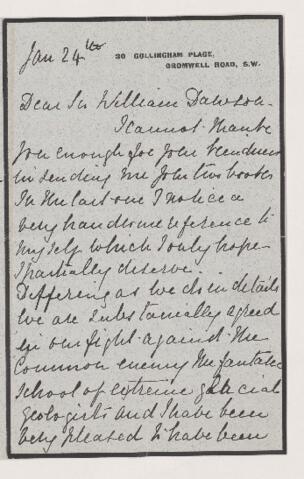 Jan 24th
30 COLLINGHAM PLACE,
CROMWELL ROAD, S.W.
Dear Sir William Dawson.
I cannot thank
you enough for your kindness
in sending me your two books
In the last one I notice a
very handsome reference to
myself which I only hope
I partially deserve.
Differing as we do in details
we are substantially agreed
in our fight against the
common enemy the fantastic
school of extreme glacial
geologists and I have been
very pleased to have been